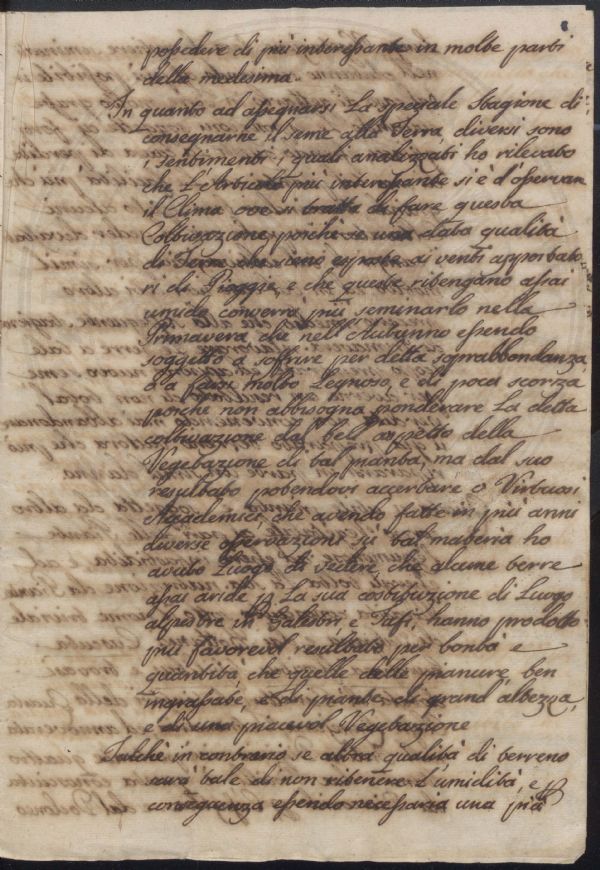 possedere di più interessante in molte parti
della medesima.
In quanto ad assegnarsi La speciale Stagione di
consegnarne il seme alla Terra, diversi sono
i sentimenti, i quali analizzati ho rilevato
che l'Articolo più interessante si è d'osservare
il Clima ove si tratta di fare questa
Coltivazione poichè se una data qualità
di Terre che sieno esposte ai venti apportato
ri di Piogge, e che queste ritengano assai
umido converrà più seminarlo nella
Primavera, che nell'Autunno essendo
soggetto a soffrire per detta soprabbondanza,
o a farsi molto Legnoso, e di poca scorza
poichè non abbisogna ponderare La detta
coltivazione dal bell'aspetto della
Vegetazione di tal pianta, ma dal suo
resultato potendovi accertare o Virtuosi
Accademici, che avendo fatte in più anni
diverse osservazioni su tal materia ho
avuto Luogo di vedere, che alcune terre
assai aride p La sua costituzione di Luogo
alpestre in Galestri e Tufi, hanno prodotto
più favorevol resultato per bontà e
quantità, che quelle delle pianure, ben
ingrassate, e di piante, di grand'altezza,
e di una piacevol Vegetazione
Talchè in contrario se altra qualità di terreno
sarà tale di non ritenere l'umidità, e p
conseguenza essendo necessaria una più